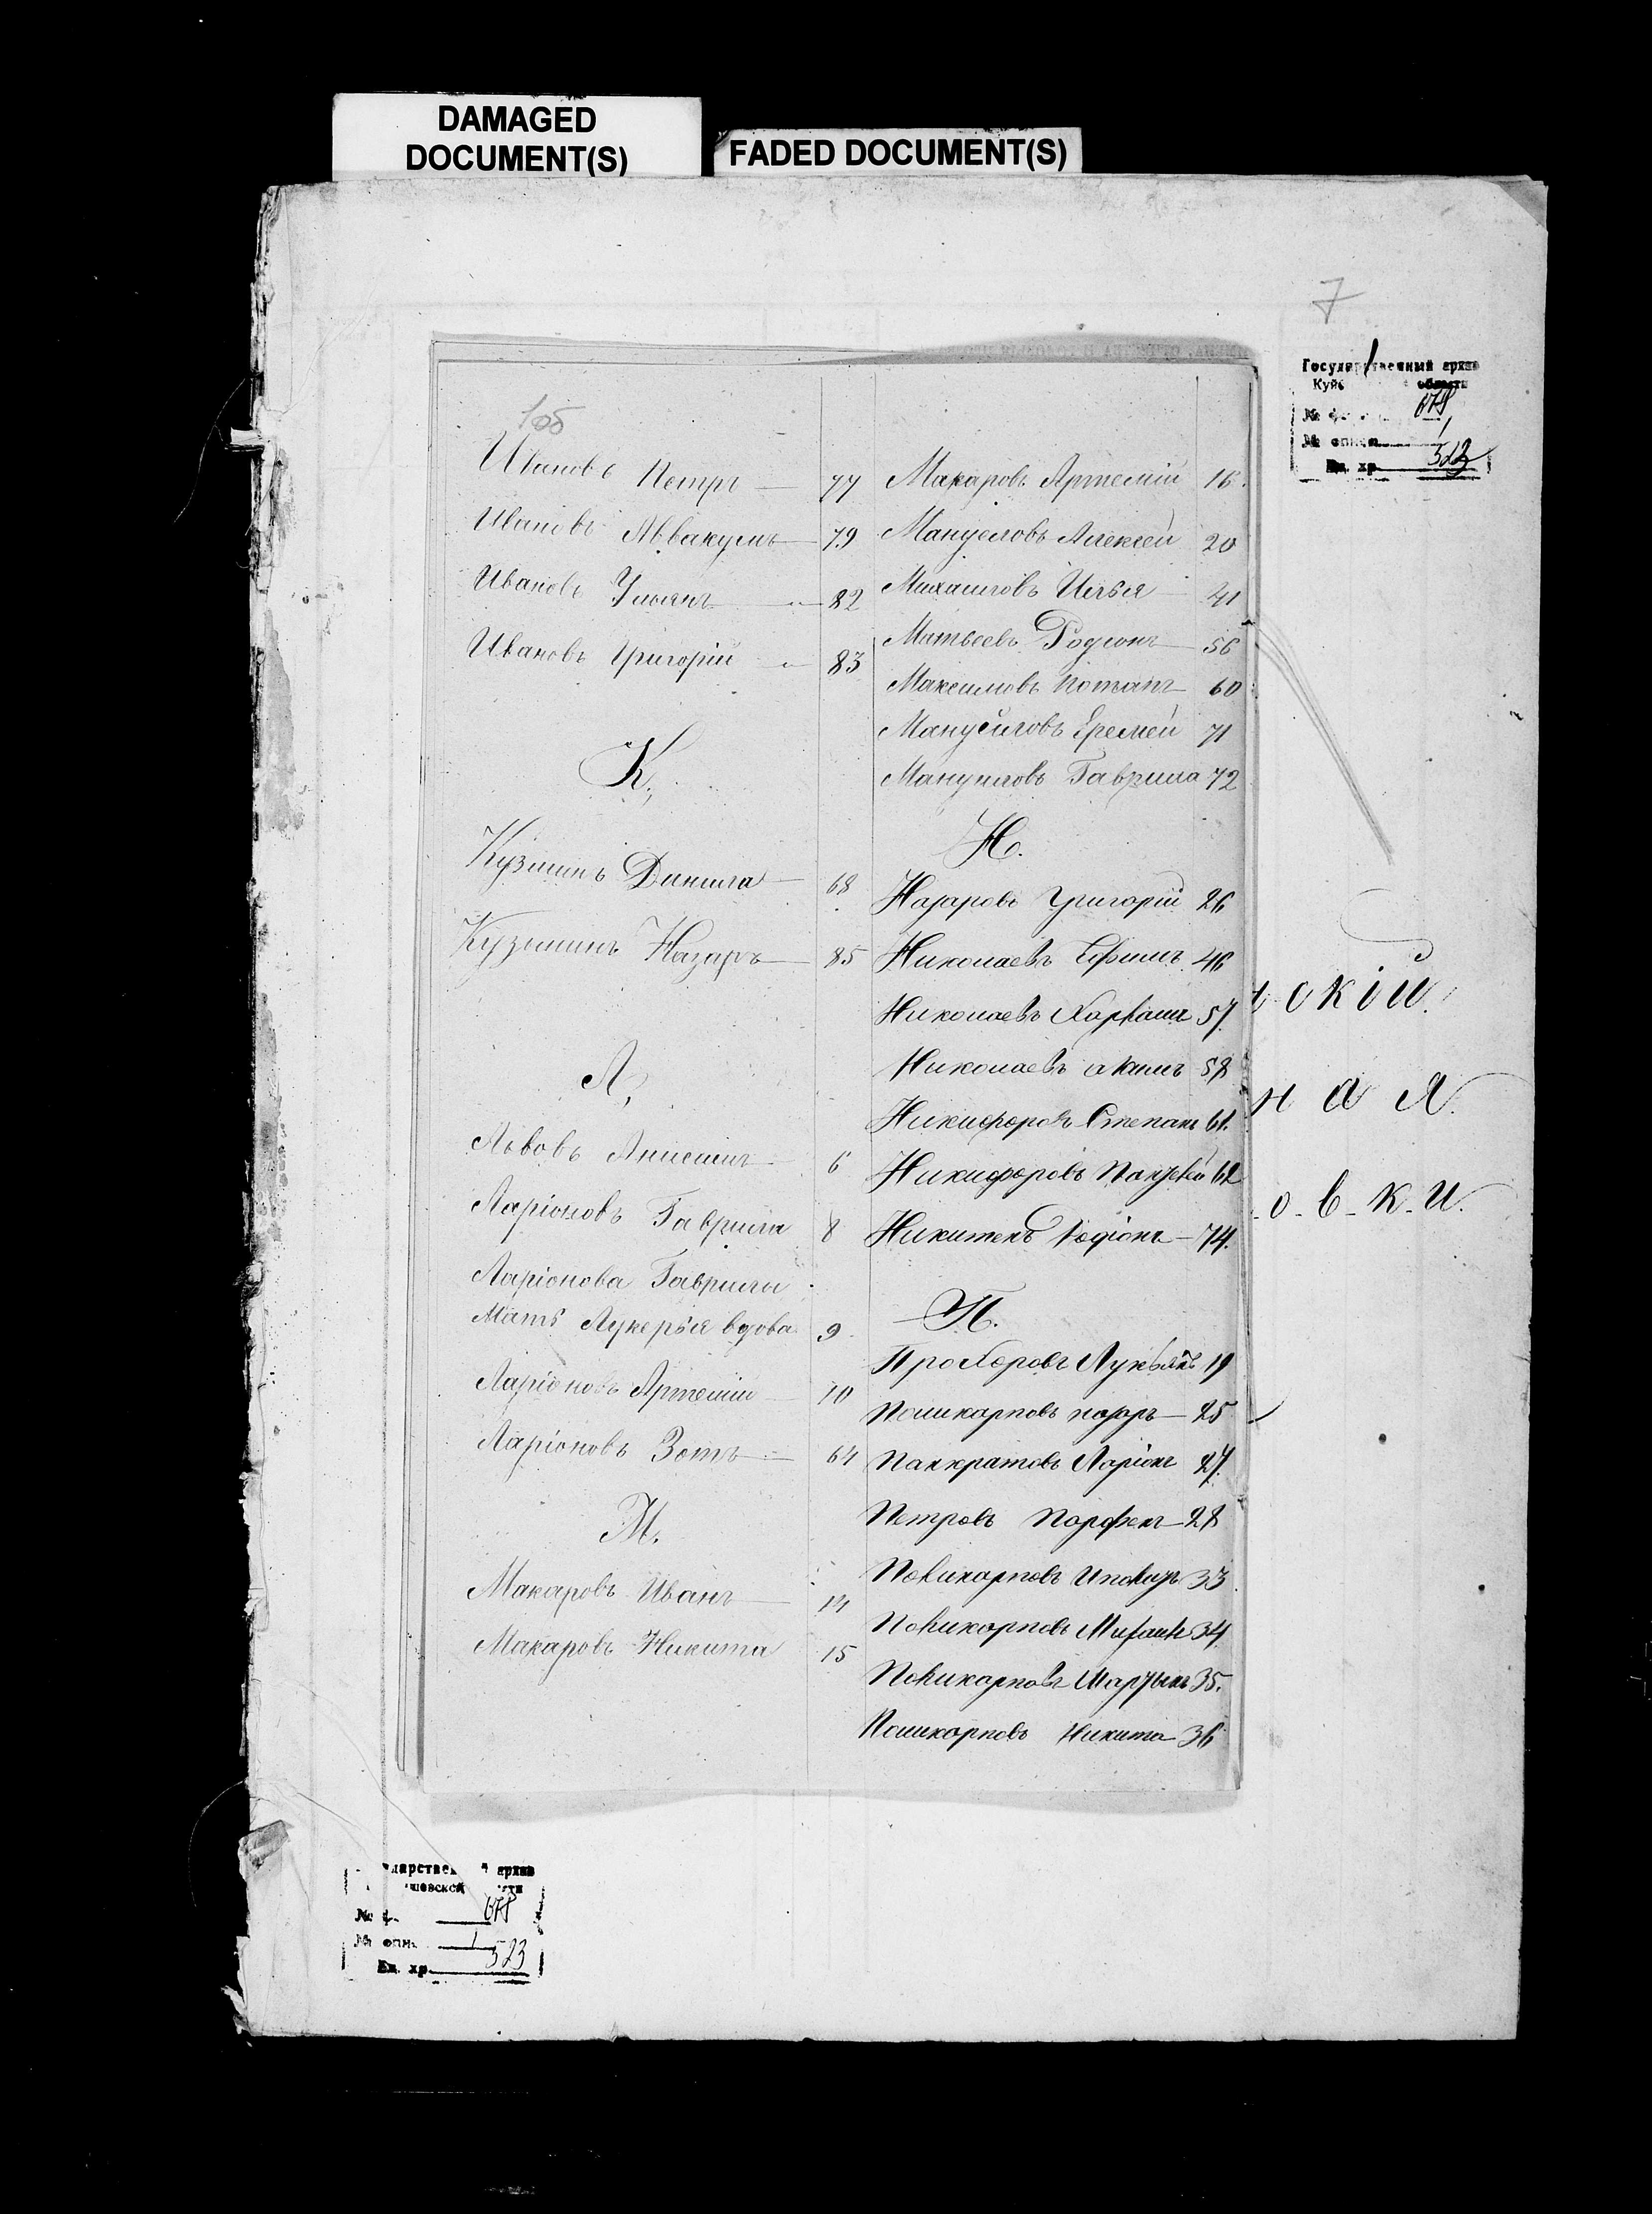 DAMAGED
DOCUMENT(S)
FADED DOCUMENT(S)
7
Государственный архив
области
№
№ описи
Ед. хр. 523
1об
Ивановъ Петръ 77
Ивановъ Аввакумъ 79
Ивановъ Ульянъ 82
Ивановъ Григорій 83
К,
Кузминъ Данила 68
Кузьминъ Назаръ 85
Л,
Львовъ Анисимъ 6
Ларіоновъ Гаврила 8
Ларіонова Гаврилы
Мать Лукерья вдова 9
Ларіоновъ Артемій 10
Ларіоновъ Зотъ 64
М.
Макаровъ Иванъ 14
Макаровъ Никита 15
Макаровъ Артемій 16
Мануеловъ Алексей 20
Михаиловъ Илья 41
Матвеевъ Родіонъ 56
Максимовъ Потапъ 60
Мануйловъ Еремей 71
Мануиловъ Гаврила 72
Н.
Назаровъ Григорій 26
Николаевъ Ефимъ 46
Николаевъ 57
Николаевъ Акимъ 58
Никифоровъ Степанъ 61.
Никифоровъ 62
Никитенъ Родіонъ 74.
П.
Прохоровъ Лукьянъ 19
Поликарповъ Назаръ 25
Панкратовъ Ларіонъ 27.
Петровъ Парфенъ 28
Поликарповъ 33
Поликарповъ 34
Поликарповъ Мартынъ 35.
Поликарповъ Никита 36
скій
ная
о-в-к-и.
архив
№
№ опи. 1
Ед. хр. 523